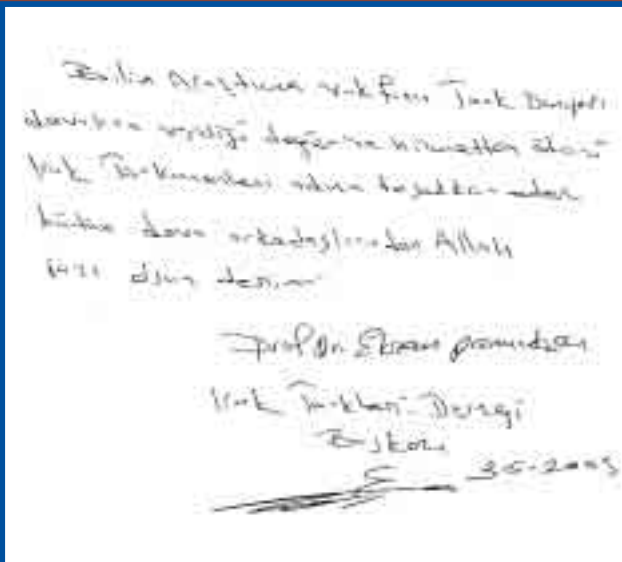 Bilim Araştırma vakfının Türk Dünyası
davasına verdiği değer ve hizmetten dolayı
Irak Türkmenleri adına teşekkür eder
bütün dava arkadaşlarından Allah
razı olsun derim
Prof Dr. Ekrem
Irak Türkleri Derneği
Başkanı
2005